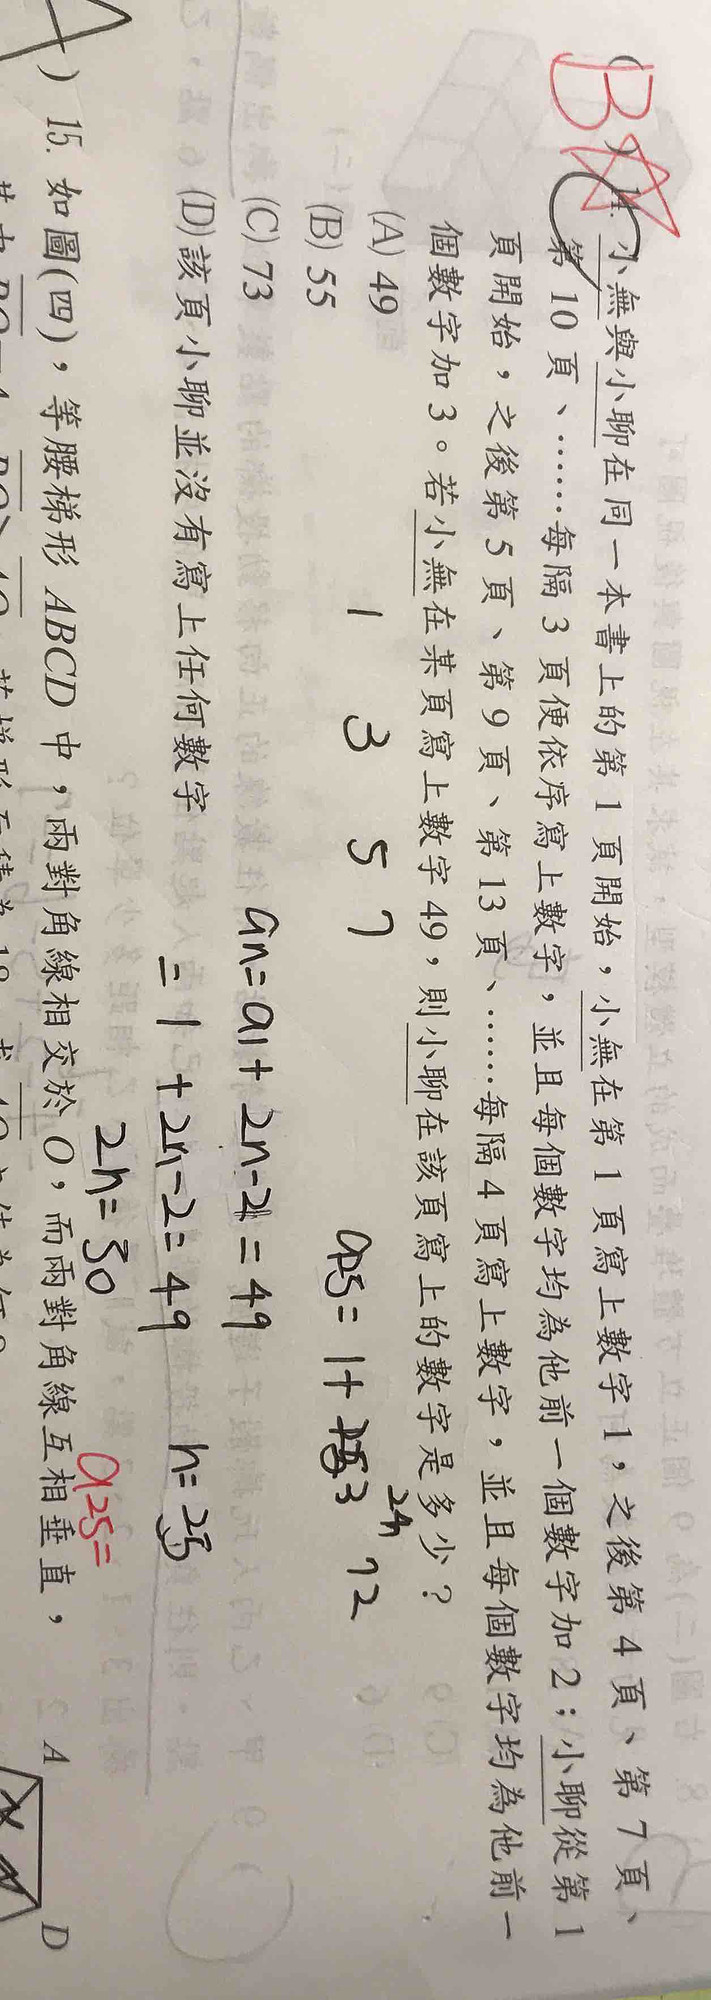 B
14. 小無與小聊在同一本書上的第1頁開始，小無在第1頁寫上數字1，之後第4頁、第7頁、
第10頁、……每隔3頁便依序寫上數字，並且每個數字均為他前一個數字加2；小聊從第1
頁開始，之後第5頁、第9頁、第13頁、……每隔4頁寫上數字，並且每個數字均為他前一
個數字加3。若小無在某頁寫上數字49，則小聊在該頁寫上的數字是多少？
(A) 49
(B) 55
(C) 73
(D) 該頁小聊並沒有寫上任何數字
1 3 5 7
24
72
a25 = 1 + 3
an = a1 + 2n-2 = 49
= 1 + 2n-2 = 49
n = 25
2n = 50
a25 =
) 15. 如圖(四)，等腰梯形 ABCD 中，兩對角線相交於 O，而兩對角線互相垂直，
A
D